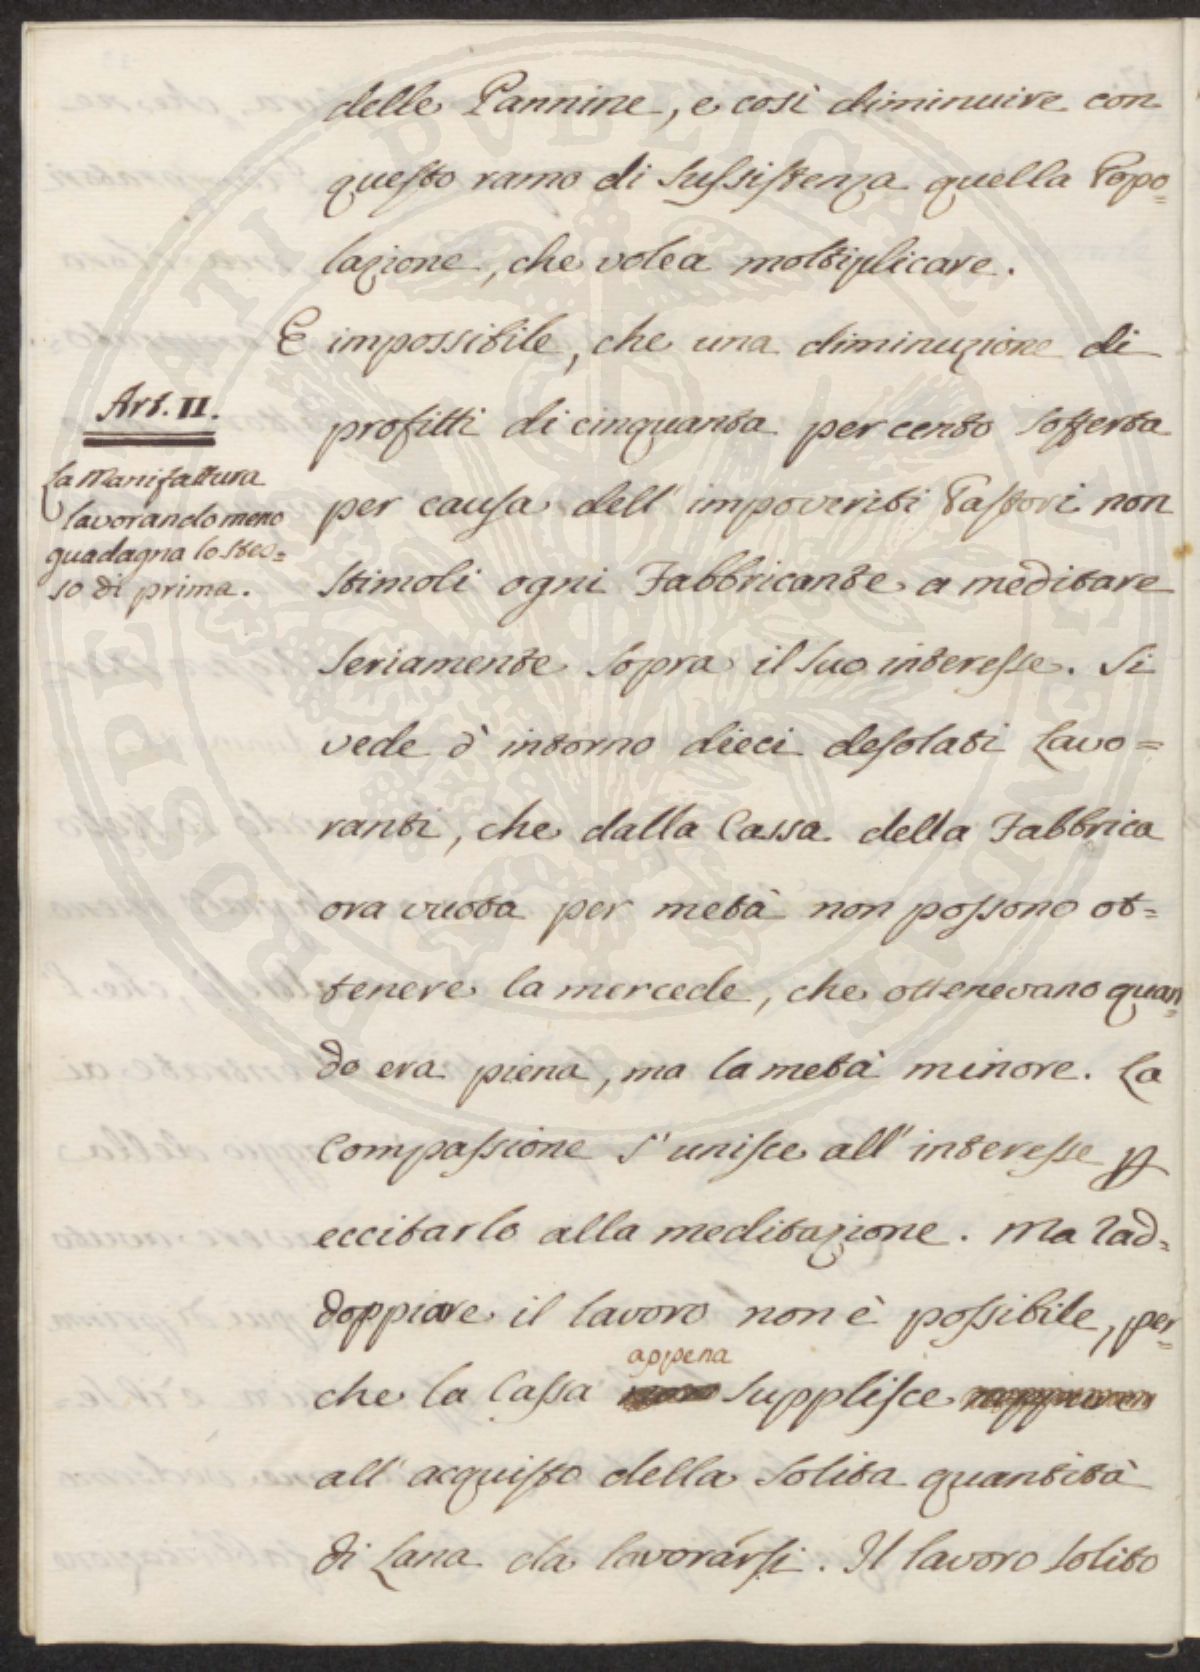 delle Pannine, e così diminuire con
questo ramo di sussistenza quella Popo=
lazione, che volea moltiplicare.
E impossibile, che una diminuzione di
Art. II.
profitti di cinquanta per cento sofferta
La Manifattura
lavorando meno
guadagna lo stes=
so di prima.
per causa dell' impoveriti Pastori non
stimoli ogni Fabbricante a meditare
seriamente sopra il suo interesse. Si
vede d' intorno dieci desolati Lavo=
ranti, che dalla Cassa della Fabbrica
ora vuota per metà non possono ot=
tenere la mercede, che ottenevano quan=
do era piena, ma la metà minore. La
Compassione s' unisce all' interesse p
eccitarlo alla meditazione. Ma rad=
doppiare il lavoro non è possibile, per=
appena
che la Cassa non supplisce neppure
all' acquisto della solita quantità
di Lana da lavorarsi. Il lavoro solito
PROSPERITATI PUBLICAE